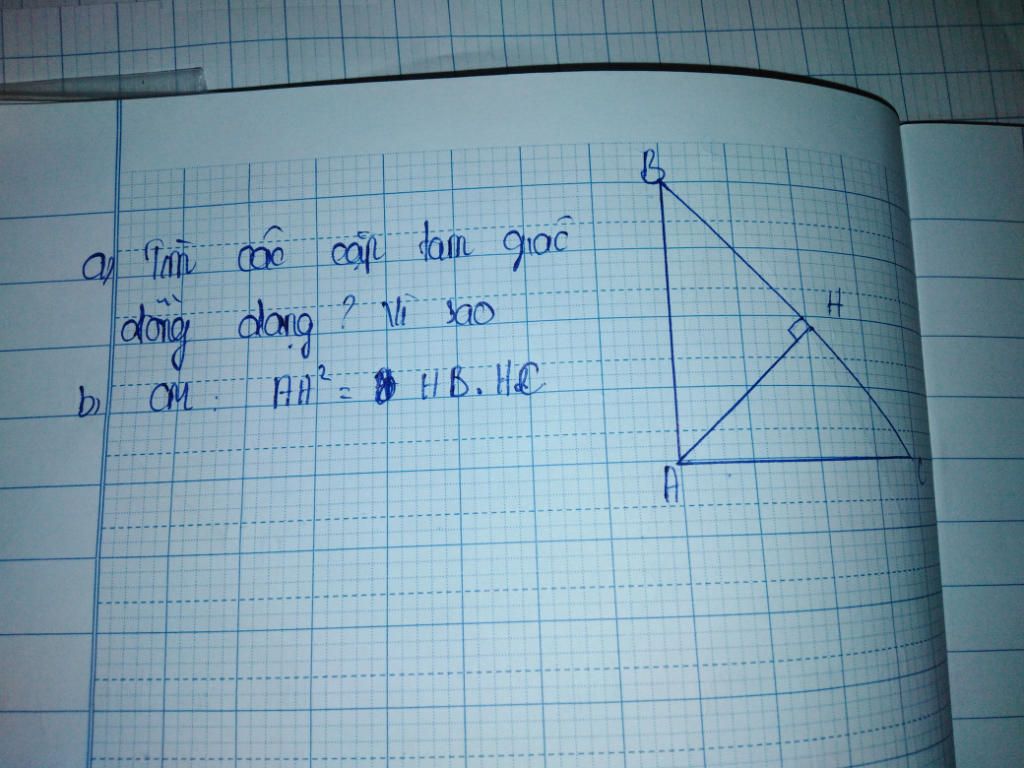 a) Tìm các cặp tam giác
đồng dạng? Vì sao
b) CM: AH² = HB.HC
B
H
A
C